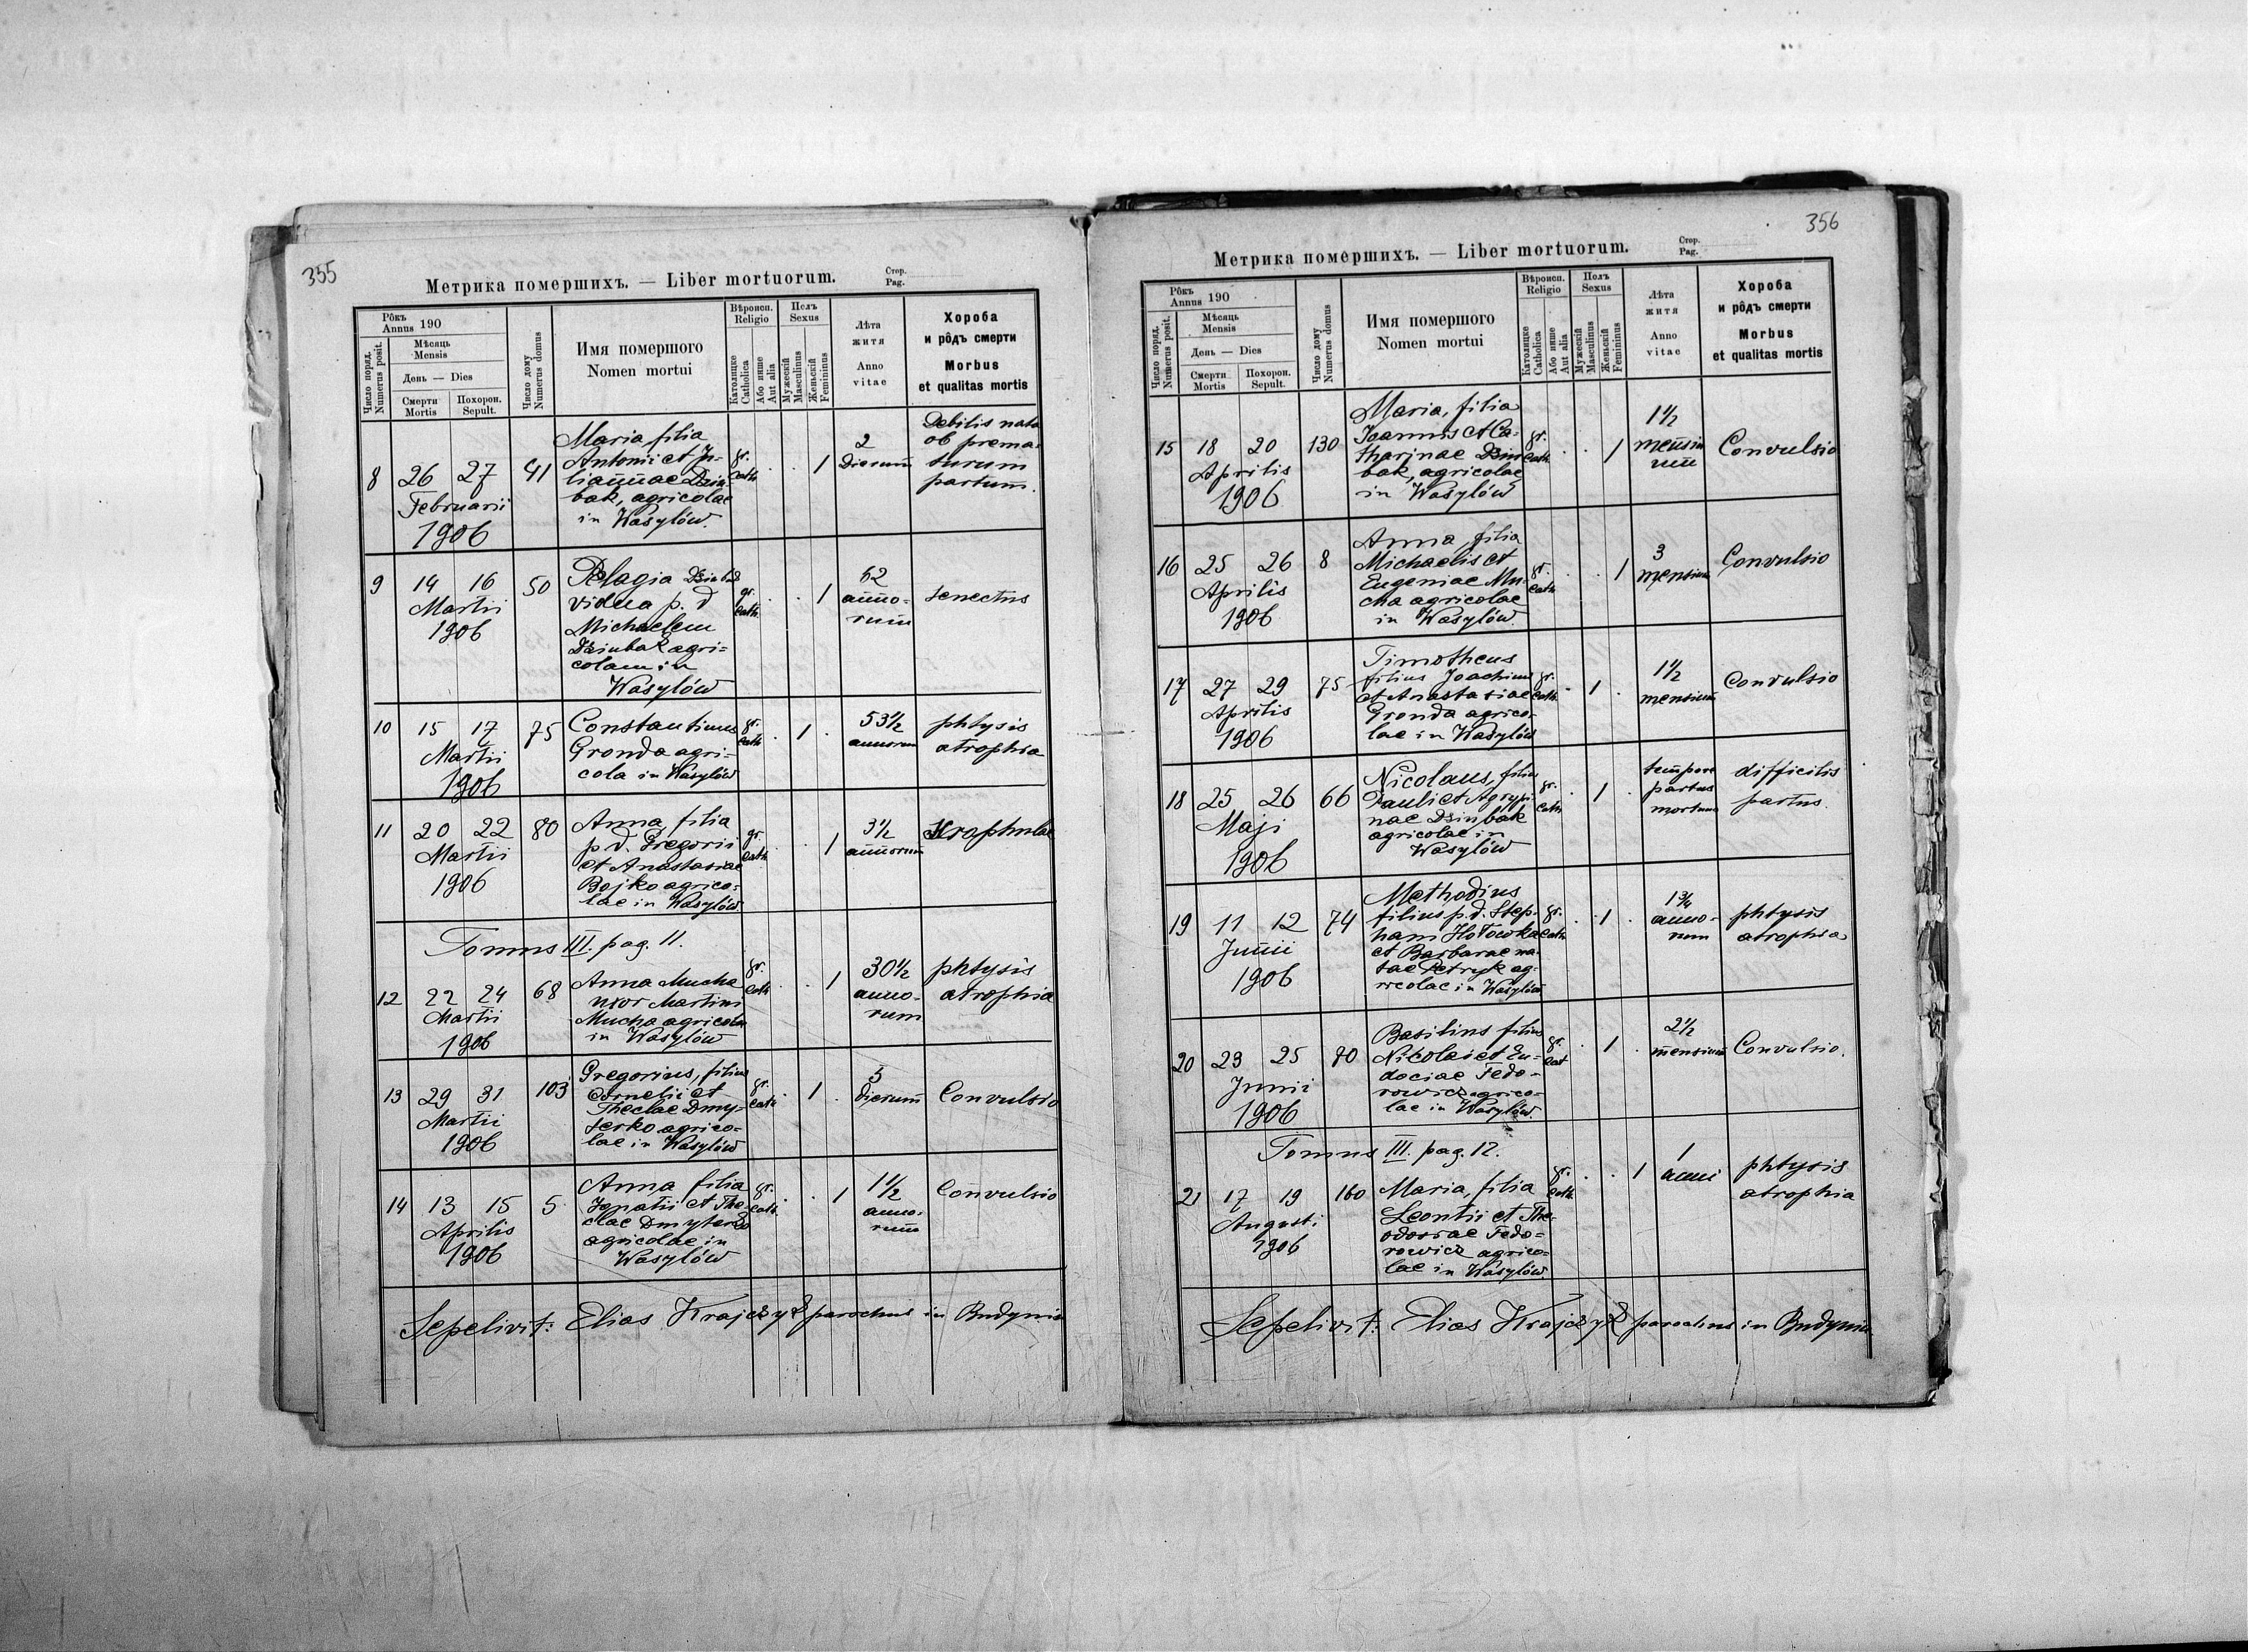 355
Метрика помершихъ. — Liber mortuorum.
Стор.
Pag.
Рôкъ
Annus 190
Число поряд.
Numerus posit.
Мѣсяць
Mensis
День — Dies
Смерти
Mortis
Похорон.
Sepult.
Число дому
Numerus domus
Имя помершого
Nomen mortui
Вѣроисп.
Religio
Католицке
Catholica
Або инше
Aut alia
Полъ
Sexus
Мужескій
Masculinus
Женьскій
Femininus
Лѣта
житя
Anno
vitae
Хороба
и рôдъ смерти
Morbus
et qualitas mortis
8 26 27 Februarii 1906 41
Maria filia
Antonii et Ju-
liannae Dziu
bak, agricolae
in Wasylów.
gr. cath. . . 1
2 Dierum
Debilis nata
ob prema-
turum
partum.
9 14 16 Martii 1906 50
Pelagia
vidua p. d
Michaelem
Dziubak agri=
colam in
Wasylów
gr. cath. . . 1
62 anno-
rum
senectus
10 15 17 Martii 1906 75
Constantinus
Gronda agri-
cola in Wasylów
gr. cath. . 1 .
53 1/2 annorum
phtysis
atrophia
11 20 22 Martii 1906 80
Anna, filia
p. d. Gregorii
et Anastasiae
Bojko agrico-
lae in Wasylów
gr. cath. . . 1
3 1/2 annorum
Tomus III. pag. 11.
12 22 24 Martii 1906 68
Anna Mucha
uxor Martini
Mucha agricolae
in Wasylów
gr. cath. . . 1
30 1/2 anno-
rum
phtysis
atrophia
13 29 31 Martii 1906 103
Gregorius, filius
Cornelii et
Theclae Dmy-
terko agrico-
lae in Wasylów
gr. cath. . 1 .
5 Dierum
Convulsio
14 13 15 Aprilis 1906 5
Anna filia
Ignatii et The-
clae Dmyterko
agricolae in
Wasylów
gr. cath. . . 1
1 1/2 anno-
rum
Convulsio
Sepelivit: Elias Krajczyk parochus in Budynin
356
Метрика помершихъ. — Liber mortuorum.
Стор.
Pag.
Рôкъ
Annus 190
Число поряд.
Numerus posit.
Мѣсяць
Mensis
День — Dies
Смерти
Mortis
Похорон.
Sepult.
Число дому
Numerus domus
Имя помершого
Nomen mortui
Вѣроисп.
Religio
Католицке
Catholica
Або инше
Aut alia
Полъ
Sexus
Мужескій
Masculinus
Женьскій
Femininus
Лѣта
житя
Anno
vitae
Хороба
и рôдъ смерти
Morbus
et qualitas mortis
15 18 20 Aprilis 1906 130
Maria, filia
Joannis et Ca-
tharinae Dziu
bak, agricolae
in Wasylów
gr. cath. . . 1
1 1/2 mensiu
rum
Convulsio
16 25 26 Aprilis 1906 8
Anna, filia
Michaelis et
Eugeniae Mu-
cha agricolae
in Wasylów.
gr. cath. . . 1
3 mensium
Convulsio
17 27 29 Aprilis 1906 75
Timotheus
filius Joachimi
et Anastasiae
Gronda agrico-
lae in Wasylów
gr. cath. . 1 .
1 1/2 mensium
Convulsio
18 25 26 Maji 1906 66
Nicolaus, filius
Pauli et Agrypi-
nae Dziubak
agricolae in
Wasylów
gr. cath. . 1 .
tempore
partus
mortuus
difficilis
partus.
19 11 12 Junii 1906 74
Methodius
filius p. d. Step-
hani Hołowka
et Barbarae na-
tae Petryk ag-
ricolae in Wasylów
gr. cath. . 1 .
1 3/4 anno-
rum
phtysis
atrophia
20 23 25 Junii 1906 80
Basilius filius
Nicolai et Eu-
dociae Fedo-
rowicz agrico-
lae in Wasylów.
gr. cat . 1 .
2 1/2 mensium
Convulsio.
Tomus III. pag. 12.
21 17 19 Augusti 1906 160
Maria, filia
Leontii et The-
odorae Fedo-
rowicz agrico-
lae in Wasylów.
gr. cath. . . 1
1 anni
phtysis
atrophia
Sepelivit: Elias Krajczyk parochus in Budynin